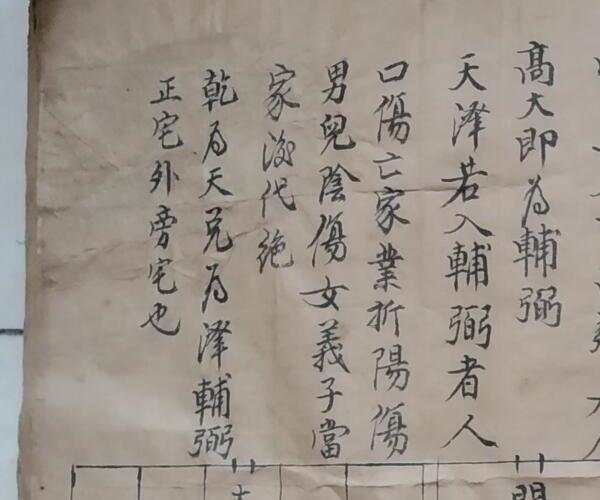 高大即为輔弼
天泽若入輔弼者人
口傷亡家業折陽傷
男兒陰傷女義子當
家後代绝
乾为天兑为泽輔弼
正宅外旁宅也